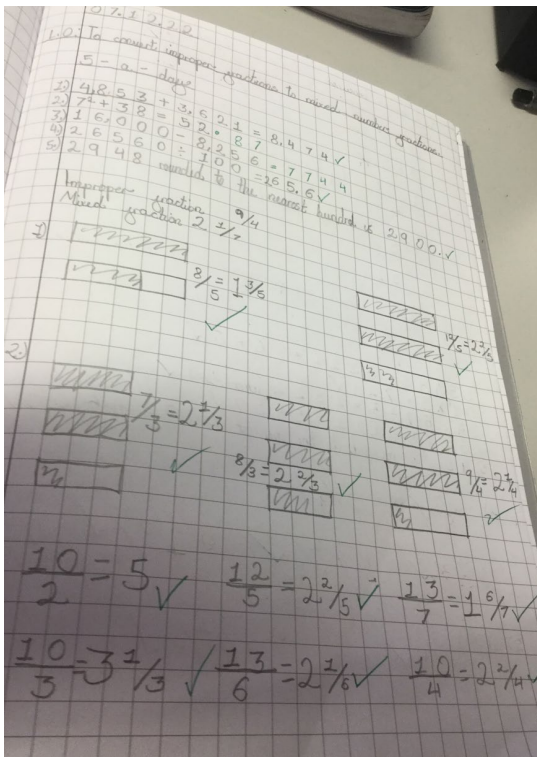 07.12.22
L.O: To convert improper fractions to mixed number fractions.
5-a-day
1) 4,853 + 3,621 = 8,474 ✓
2) 7² + 38 = 87
3) 16,000 - 8,256 = 7744
4) 26560 ÷ 100 = 265.6 ✓
5) 2948 rounded to the nearest hundred is 2900. ✓
Improper fraction 9/4
Mixed fraction 2 1/7
1)
8/5 = 1 3/5 ✓
12/5 = 2 2/5 ✓
2)
7/3 = 2 1/3 ✓
8/3 = 2 2/3 ✓
9/4 = 2 1/4 ✓
10/2 = 5 ✓ 12/5 = 2 2/5 ✓ 13/7 = 1 6/7 ✓
10/3 = 3 1/3 ✓ 13/6 = 2 1/6 ✓ 10/4 = 2 2/4 ✓